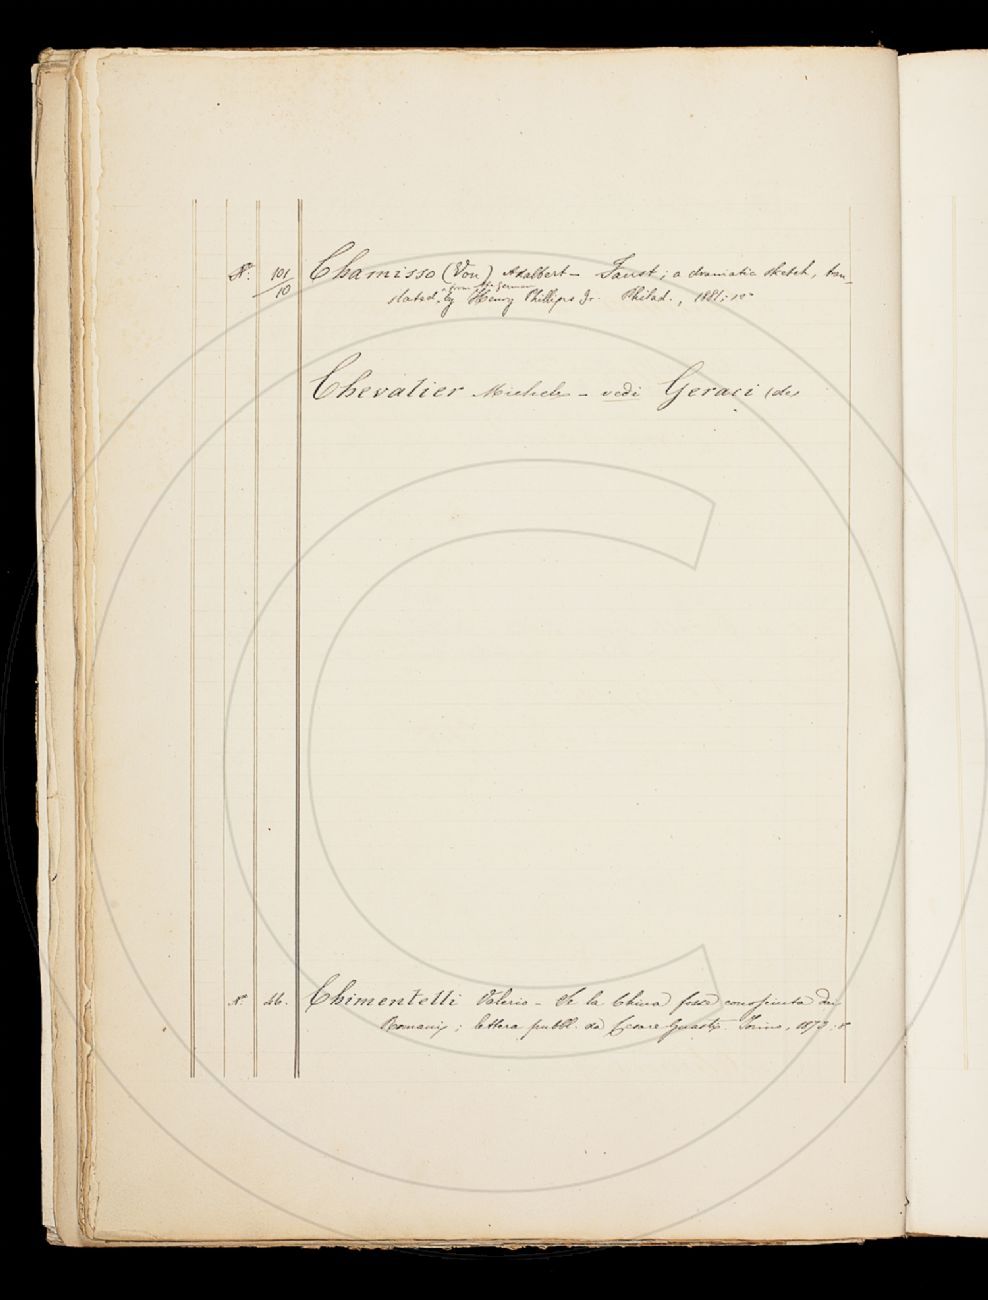 N. 101/10 Chamisso (Von) Adalbert – Faust; a dramatic sketch, tran-
slated, from the german by Henry Phillips Jr. Philad., 1881; 12°
Chevalier Michele – vedi Geraci (de)
N. 46. Chimentelli Valerio – Se la China fosse conosciuta dai
Romani; lettera pubbl. da Cesare Guasti. Torino, 1879; 8°